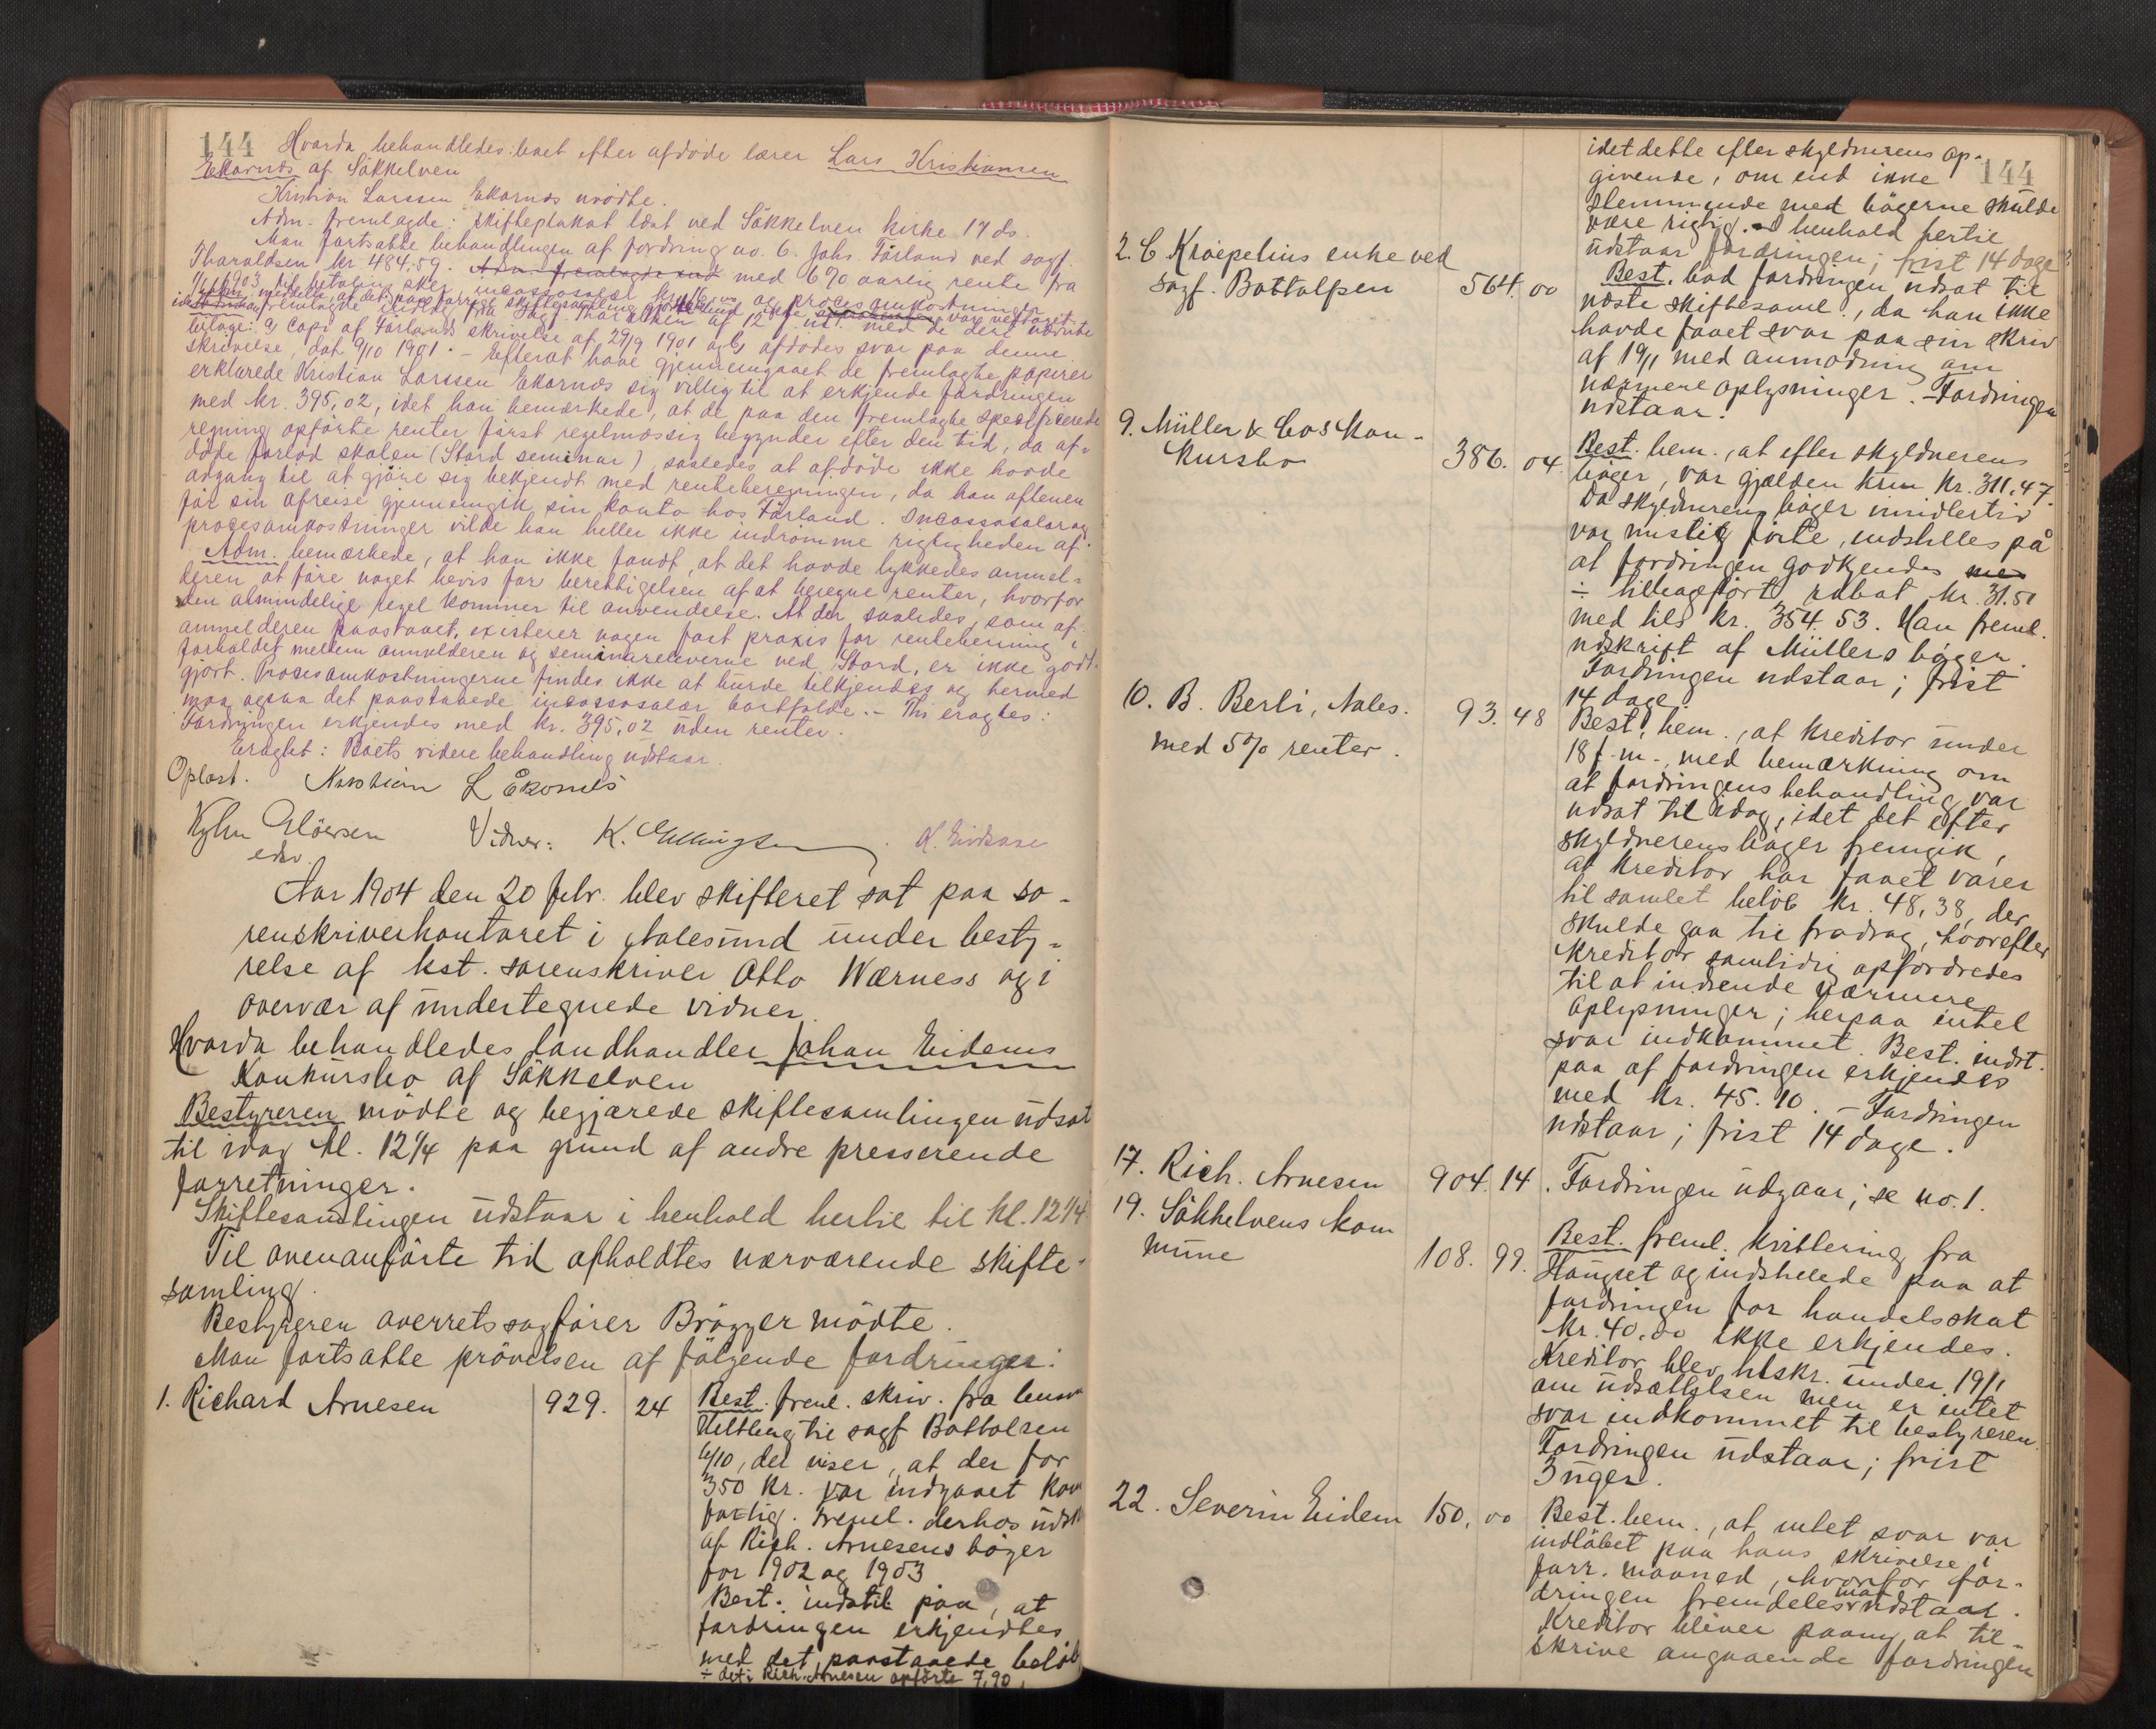 144 Hvorda behandledes boet efter afdöde lærer Lars Kristiansen
Ekornæs af Sökkelven
Kristian Larssen Ekornæs mödte.
Adm. fremlagde: skifteplakat læst ved Sökkelven kirke 17 ds.
Man fortsatte behandlingen af fordring no. 6. Johs. Förland ved sagf.
Tharaldsen kr 484.59. Adm. fremlagde med 6% aarlig rente fra
1903 til betaling sker, incassosalær og procesomkostninger
bilage: a copi af Förlands skrivelse af 29/9 1901 og b, afdödes svar paa denne
skrivelse, dat 9/10 1901. - Efterat have gjennemgaaet de fremlagte papirer
erklærede Kristian Larssen Ekornæs sig villig til at erkjende fordringen
med kr. 395,02, idet han bemærkede, at de paa den fremlagte specificerede
regning opförte renter först regelmæssig begynder efter den tid, da af-
döde forlod skolen (Stord seminar), saaledes at afdöde ikke havde
adgang til at gjöre sig bekjendt med renteberegningen, da han aftenen
för sin afreise gjennemgik sin konto hos Förland. Incassosalær og
procesomkostninger vilde han heller ikke indrömme rigtigheden af.
Adm. bemærkede, at han ikke fandt, at det havde lykkedes anmel-
deren at före noget bevis for berettigelsen af at beregne renter, hvorfor
den almindelige regel kommer til anvendelse. At der saaledes, som af
anmelderen paastaaet, existerer nogen fast praxis for renteberegning i
forholdet mellem anmelderen og seminareleverne ved Stord, er ikke godt-
gjort. Procesomkostningerne findes ikke at burde tilkjendes og hermed
maa ogsaa det paastaaede incassosalær bortfalde. - Thi eragtes:
Fordringen erkjendes med kr. 395,02 uden renter.
Eragtet: Boets videre behandling udstaar.
Oplæst. Kristian L Ekornes
Glöersen Vidner: K. Ellingsen
edsv.
Aar 1904 den 20 febr. blev skifteret sat paa so-
renskriverkontoret i Aalesund under besty-
relse af kst. sorenskriver Otto Wærness og i
overvær af undertegnede vidner.
Hvorda behandledes landhandler Johan Eidems
Konkursbo af Sökkelven
Bestyreren mödte og begjærede skiftesamlingen udsat
til idag kl. 12 1/4 paa grund af andre presserende
forretninger.
Skiftesamlingen udstaar i henhold hertil til kl. 12 1/4
Til ovenanförte tid afholdtes nærværende skifte-
samling.
Bestyreren overretssagförer Brögger mödte.
Man fortsatte prövelsen af fölgende fordringer:
1. Richard Arnesen 929. 24 Best. freml. skriv. fra
til sagf Bottolsen
6/10, der viser, at der for
350 kr. var indgaaet
forlig. Freml. derhos
af Rich. Arnesens böger
for 1902 og 1903
Best. indstil paa, at
fordringen erkjendtes
med det paastaaede belöb
÷ det i Rich. Arnesen opförte 7,90,
144
idet dette efter skyldnerens op-
givende, om end ikke
stemmende med bögerne skulde
være rigtig. I henhold hertil
udstaar fordringen; frist 14 dage
2. C. Kræpelius enke ved
sagf. Bottolfsen 564. 00
Best. bad fordringen udsat til
næste skiftesaml., da han ikke
havde faaet svar paa sin skriv
af 19/1 med anmodning om
nærmere oplysninger. - Fordringen
udstaar.
9. Müller & Cos kon-
kursbo 386. 04
Best. bem., at efter skyldnerens
böger, var gjælden kun kr. 311,47.
Da skyldnerens böger imidlertid
var mislig förte, indstilles på
at fordringen godkjendes
÷ tilbageført rabat kr. 31.51
med tils kr. 354.53. Han freml.
udskrift af Müllers böger.
Fordringen udstaar; frist
14 dage
10. B. Berli, Aales. 93. 48
med 5% renter.
Best. bem., at kreditor under
18 f. m. med bemærkning om
at fordringens behandling var
udsat til idag, idet det efter
skyldnerens böger fremgik,
at kreditor har faaet varer
til samlet belöb kr. 48,38, der
skulde gaa til fradrag, hvorefter
kreditor samtidig opfordredes
til at indsende nærmere
oplysninger; herpaa intet
svar indkommet. Best. indst.
paa at fordringen erkjendes
med kr. 45.10. - Fordringen
udstaar; frist 14 dage.
17. Rich. Arnesen 904. 14. Fordringen udgaar; se no. 1.
19. Sökkelvens kom
mune 108. 99.
Best. freml. kvittering fra
Haugset og indstillede paa at
fordringen for handelsskat
kr. 40.00 ikke erkjendes.
Kreditor blev tilskr. under 19/1
om udsættelsen men er intet
svar indkommet til bestyreren.
Fordringen udstaar; frist
3 uger.
22. Severin Eidem 150, 00
Best. bem., at intet svar var
indlöbet paa hans skrivelse i
forr. maaned, hvorfor for-
dringen fremdeles maa udstaar.
Kreditor bliver paany at til-
skrive angaaende fordringen